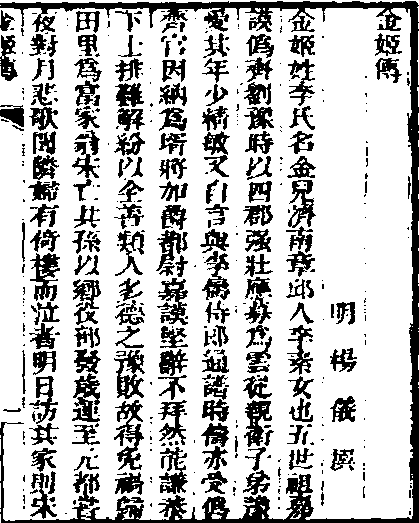 金姬傳
明楊儀撰
金姬姓李氏名金兒濟南章邱人李素女也五世祖嘉
謨僞齊劉豫時以四郡强壯應募爲雲從親衛子弟豫
愛其年少精敏又自言與李儔侍郎通譜時儔亦受僞
齊官因納爲壻將加爵都尉嘉謨堅辭不拜然能謙恭
下士排難解紛以全善類人多德之豫敗故得免禍歸
田里爲富家翁宋亡其孫以鄉役部發歲運至元都嘗
夜對月悲歌聞隣婦有倚樓而泣者明日訪其家則宋
金姬傳